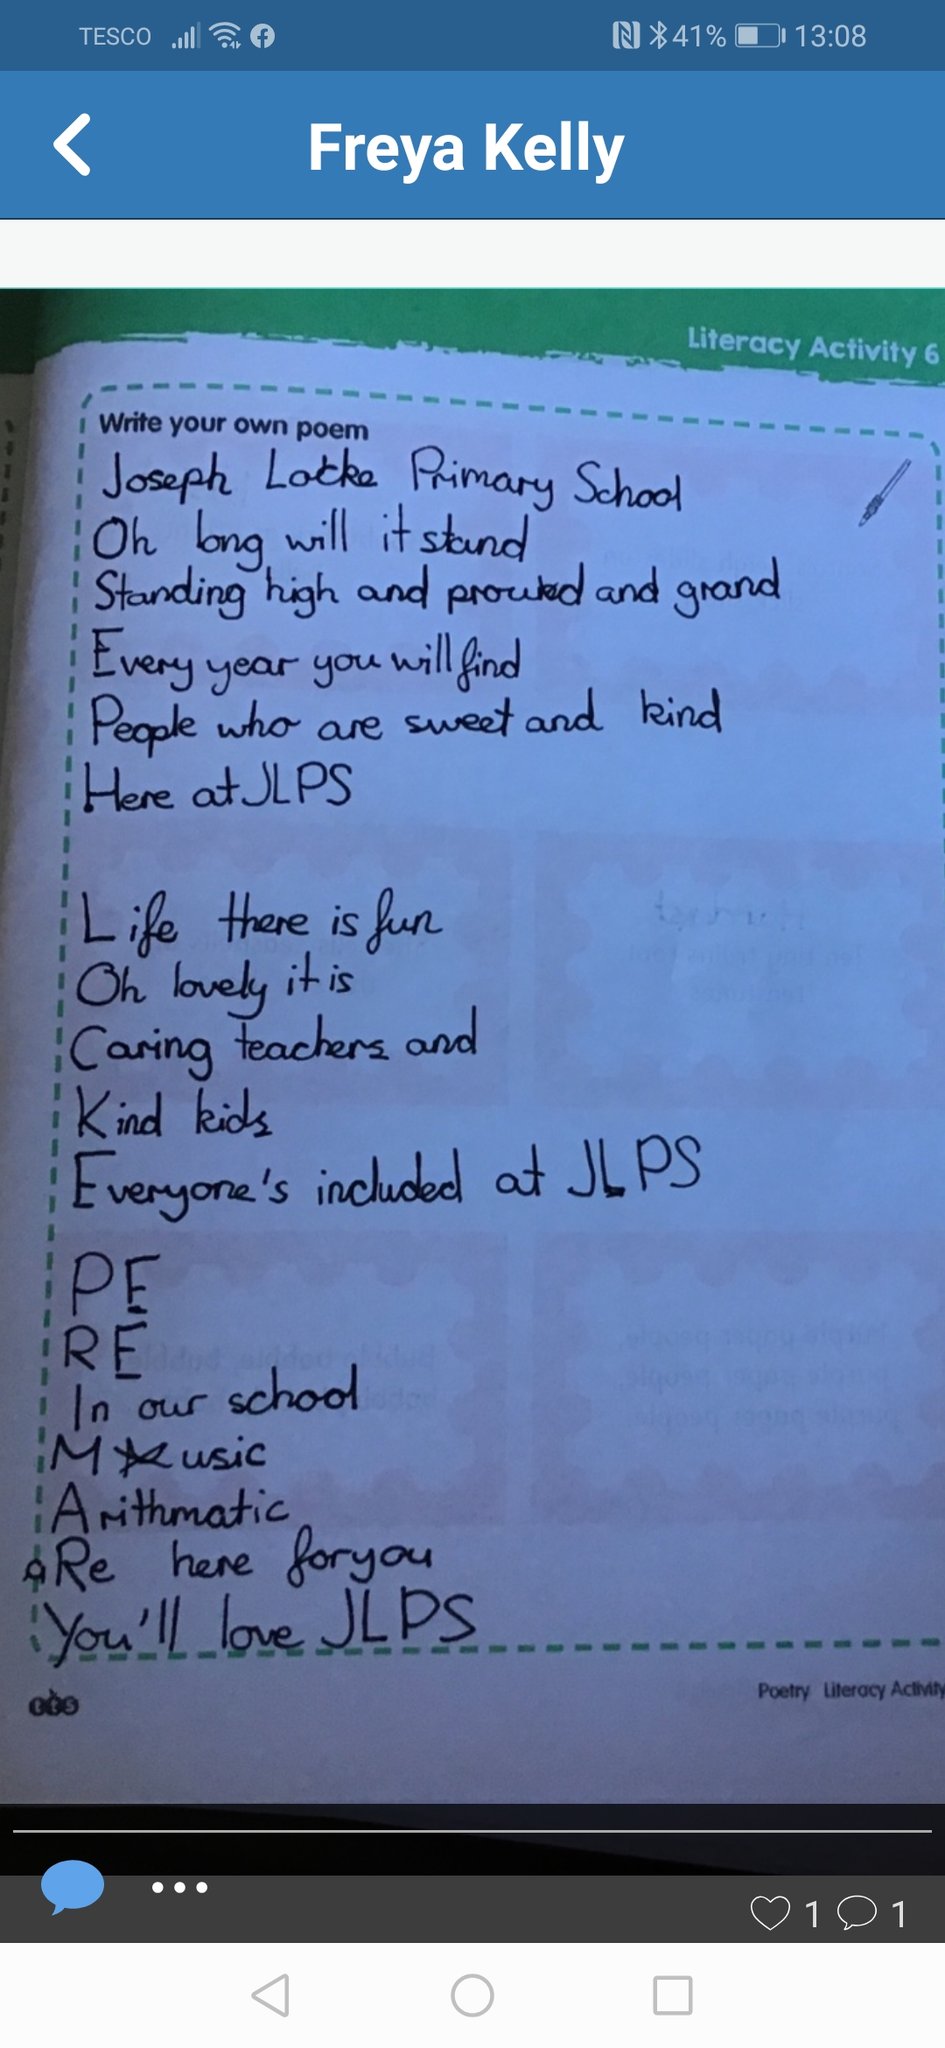 TESCO 41% 13:08
Freya Kelly
Literacy Activity 6
Write your own poem
Joseph Locke Primary School
Oh long will it stand
Standing high and prouded and grand
Every year you will find
People who are sweet and kind
Here at JLPS
Life there is fun
Oh lovely it is
Caring teachers and
Kind kids
Everyone's included at JLPS
PE
RE
In our school
Music
Arithmatic
Re here for you
You'll love JLPS
Poetry Literacy Activity
1 1